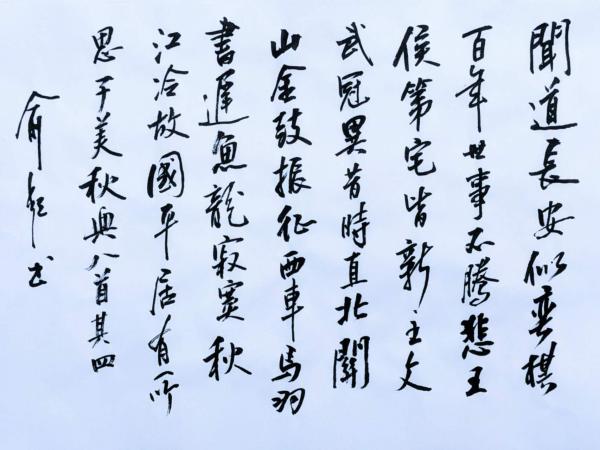 聞道長安似弈棋
百年世事不勝悲王
侯第宅皆新主文
武冠異昔時直北關
山金鼓振征西車馬羽
書遲魚龍寂寞秋
江冷故國平居有所
思子美秋興八首其四
俞书